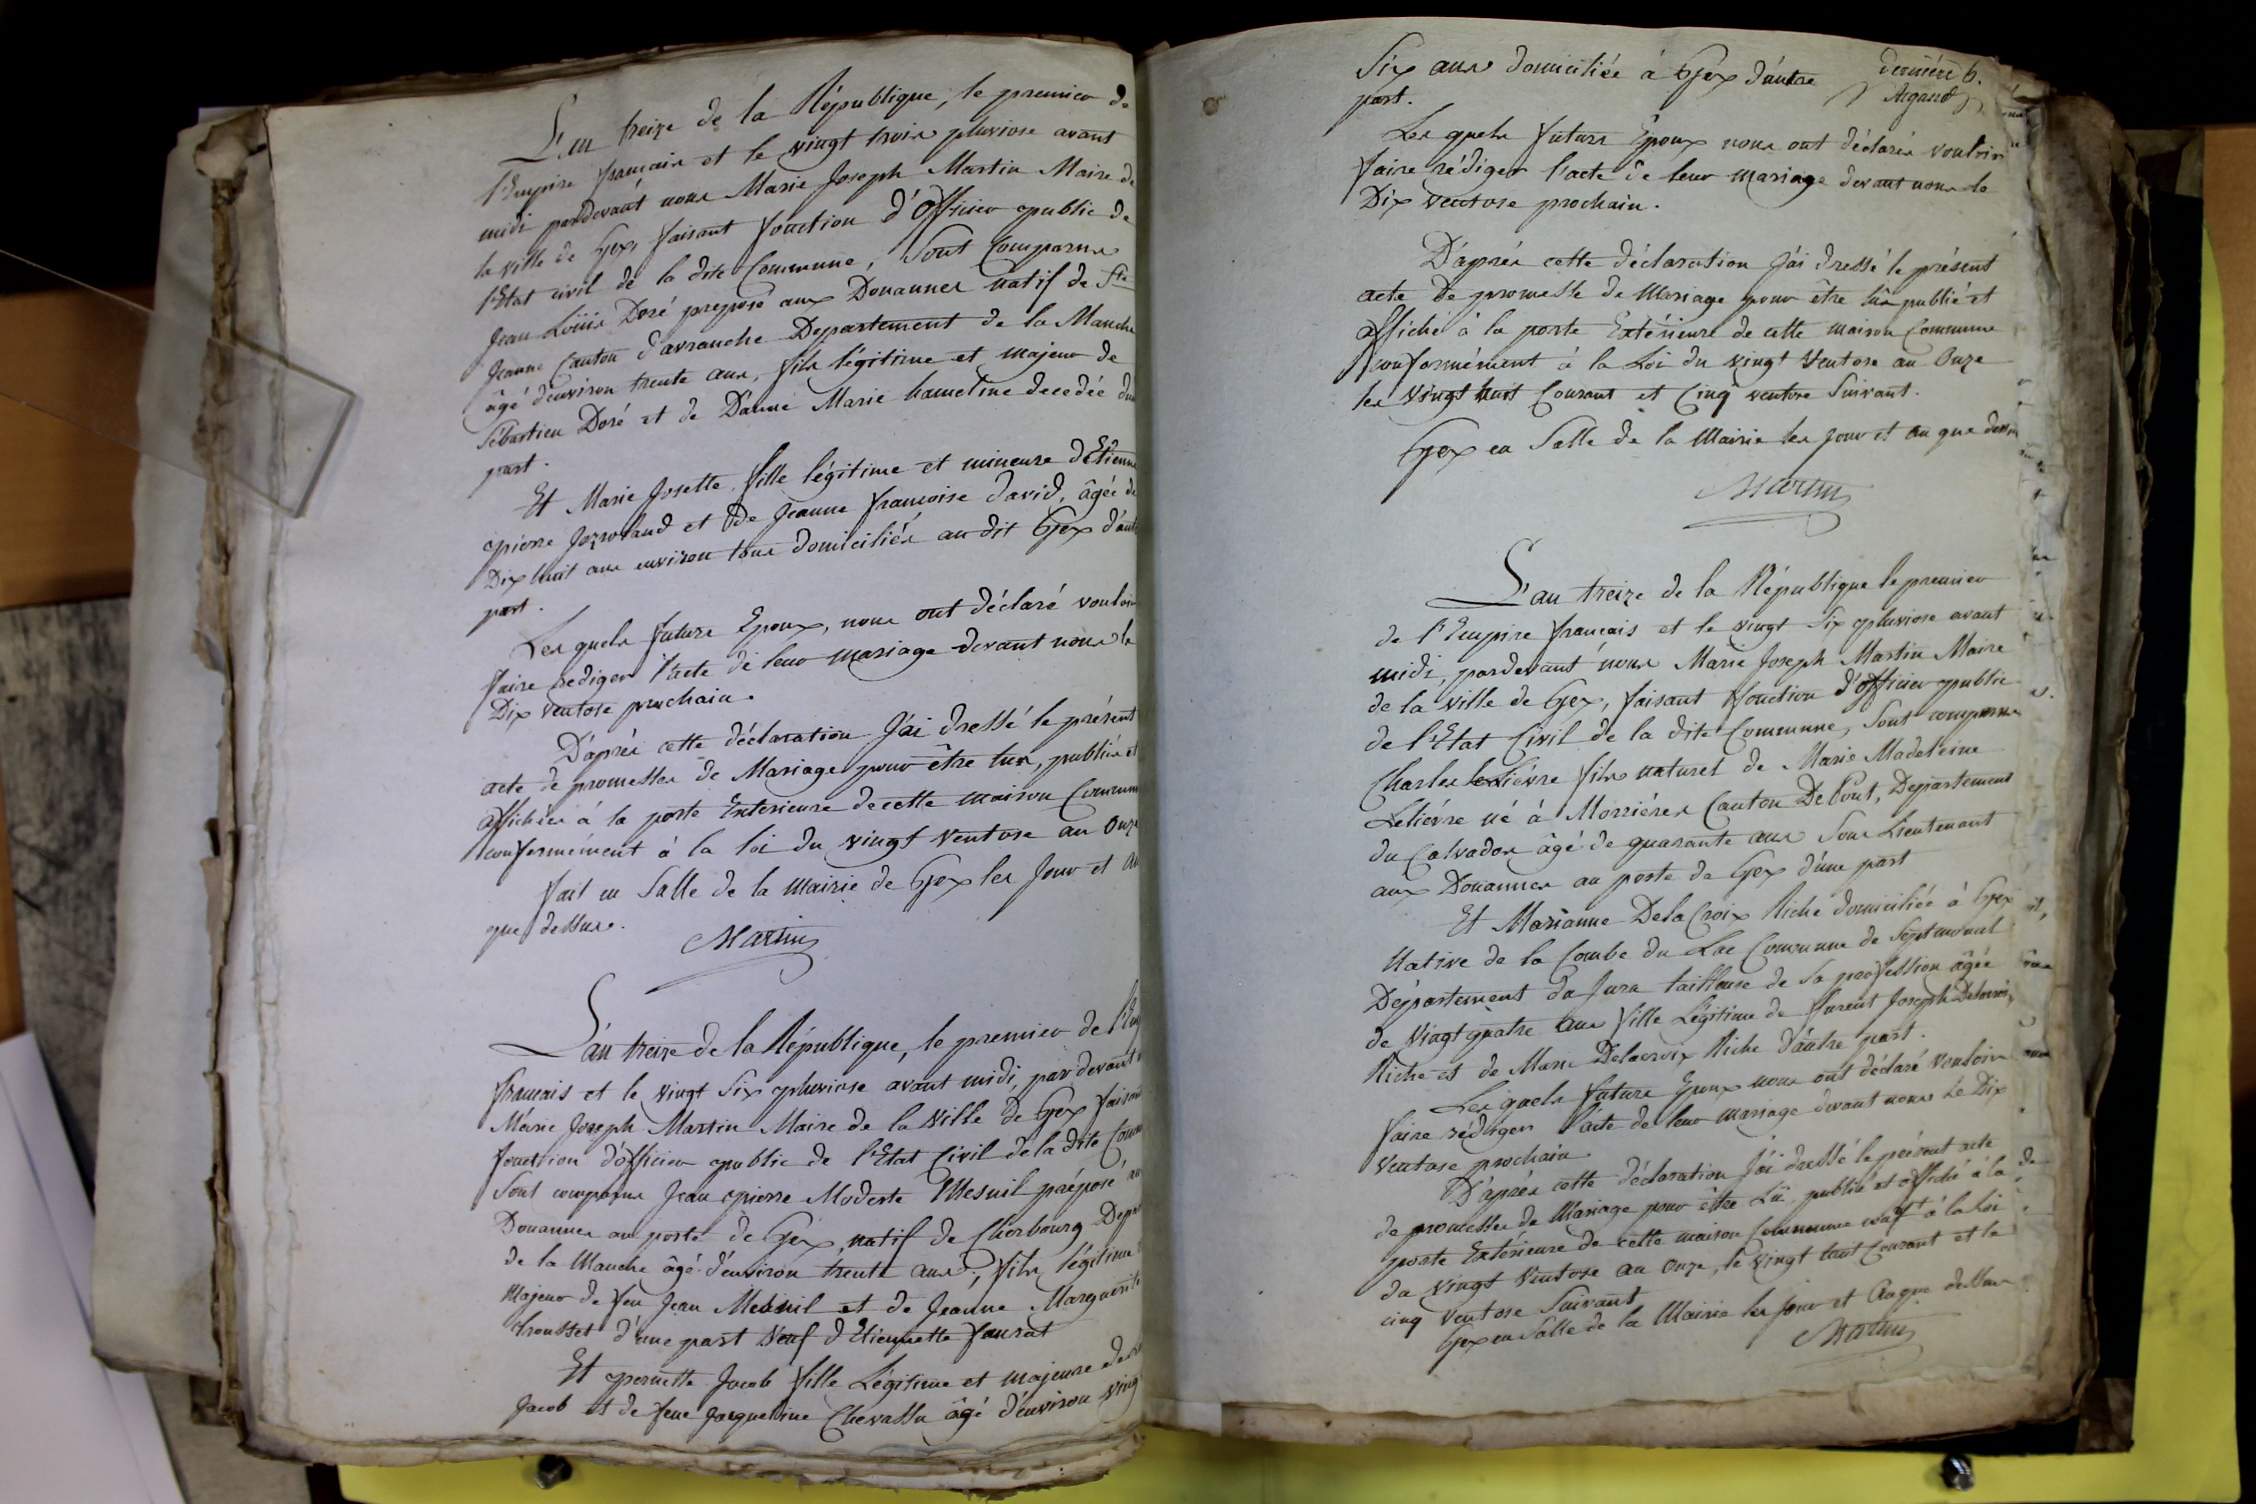 L'an treize de la République, le premier de
l'Empire français et le vingt trois pluviose avant
midi pardevant nous Marie Joseph Martin Maire de
la ville de Gex, faisant fonction d'Officier public de
l'Etat civil de la dite Commune, Sont Comparus
Jean Loüis Doré preposé aux Douannes natif de Ste
Jeanne Canton d'avranche Departement de la Manche
âgé d'environ trente ans, fils légitime et majeur de
Sébastien Doré et de Danne Marie hameline decedée d'une
part.
Et Marie Josette fille légitime et mineure d'Etienne
pierre et de Jeanne françoise david, âgée de
Dix huit ans environ tous domiciliés au dit Gex d'autre
part.
Les quels futurs Epoux, nous ont déclaré vouloir
faire rediger l'acte de leur mariage devant nous le
Dix ventose prochain.
D'après cette déclaration J'ai dressé le présent
acte de promesses de Mariage pour être lus, publiés et
affichés à la porte Exterieure de cette maison Commune
conformément à la loi du vingt Ventose an Onze
fait en Salle de la Mairie de Gex les Jour et An
que dessus.
Martin
L'an treize de la République, le premier de l'Em
français et le vingt Six pluviose avant midi, par devant n
Marie Joseph Martin Maire de la Ville de Gex faisant
fonction d'officier public de l'Etat Civil de la dite Comm
Sont comparus Jean pierre Modeste Mesnil préposé au
Douannes au poste de Gex, natif de Cherbourg Depar
de la Manche âgé d'environ trente ans, fils légitime
Majeur de feu Jean Mesnil et de Jeanne Marguerite
trousset d'une part Veuf d'Etiennette faurat
Et pernette Jacob fille Légitime et majeure de
Jacob et de feue Jacqueline Chevassu âgé d'environ Ving
Six ans domiciliée à Gex d'autre
part.
dernière 6.
Argand
Les quels futurs Epoux nous ont déclarés vouloir
faire rédiger l'acte de leur mariage devant nous le
Dix ventose prochain.
D'après cette déclaration J'ai dressé le présent
acte de promesse de Mariage pour être lû publié et
affiché à la porte Extérieure de cette maison Commune
conformément à la Loi du vingt Ventose an Onze
les Vingt huit Courant et Cinq ventose Suivant.
Gex en Salle de la Mairie les Jour et An que dessus
Martin
L'an treize de la République le premier
de l'Empire français et le vingt Six pluviose avant
midi, pardevant nous Marie Joseph Martin Maire
de la ville de Gex, faisant fonction d'officier public
de l'Etat Civil de la dite Commune, Sont comparus
Charles Lelièvre fils naturel de Marie Madeleine
Lelièvre né à Morrières Canton De Pont, Departement
du Calvados âgé de quarante ans Sous Lieutenant
aux Douannes au poste de Gex d'une part
Et Marianne Dela Croix Riche domiciliée à Gex
Native de la Combe du Lac Commune de Septmoncel
Département du Jura tailleuse de Sa profession âgée
de Vingt quatre ans fille Légitime de Laurent Joseph Delacroix
Riche et de Marie Delacroix Riche D'autre part.
Les quels futurs Epoux nous ont déclaré Vouloir
faire rédiger l'acte de leur mariage devant nous Le Dix
Ventose prochain
D'après cette déclaration J'ai dressé le présent acte
de promesses de Mariage pour être Lu, publié et affiché à la
porte Extérieure de cette maison Commune conft à la Loi
du vingt Ventose an Onze, le vingt huit Courant et le
cinq Ventose Suivant
Gex en Salle de la Mairie les Jour et An que dessus
Martin